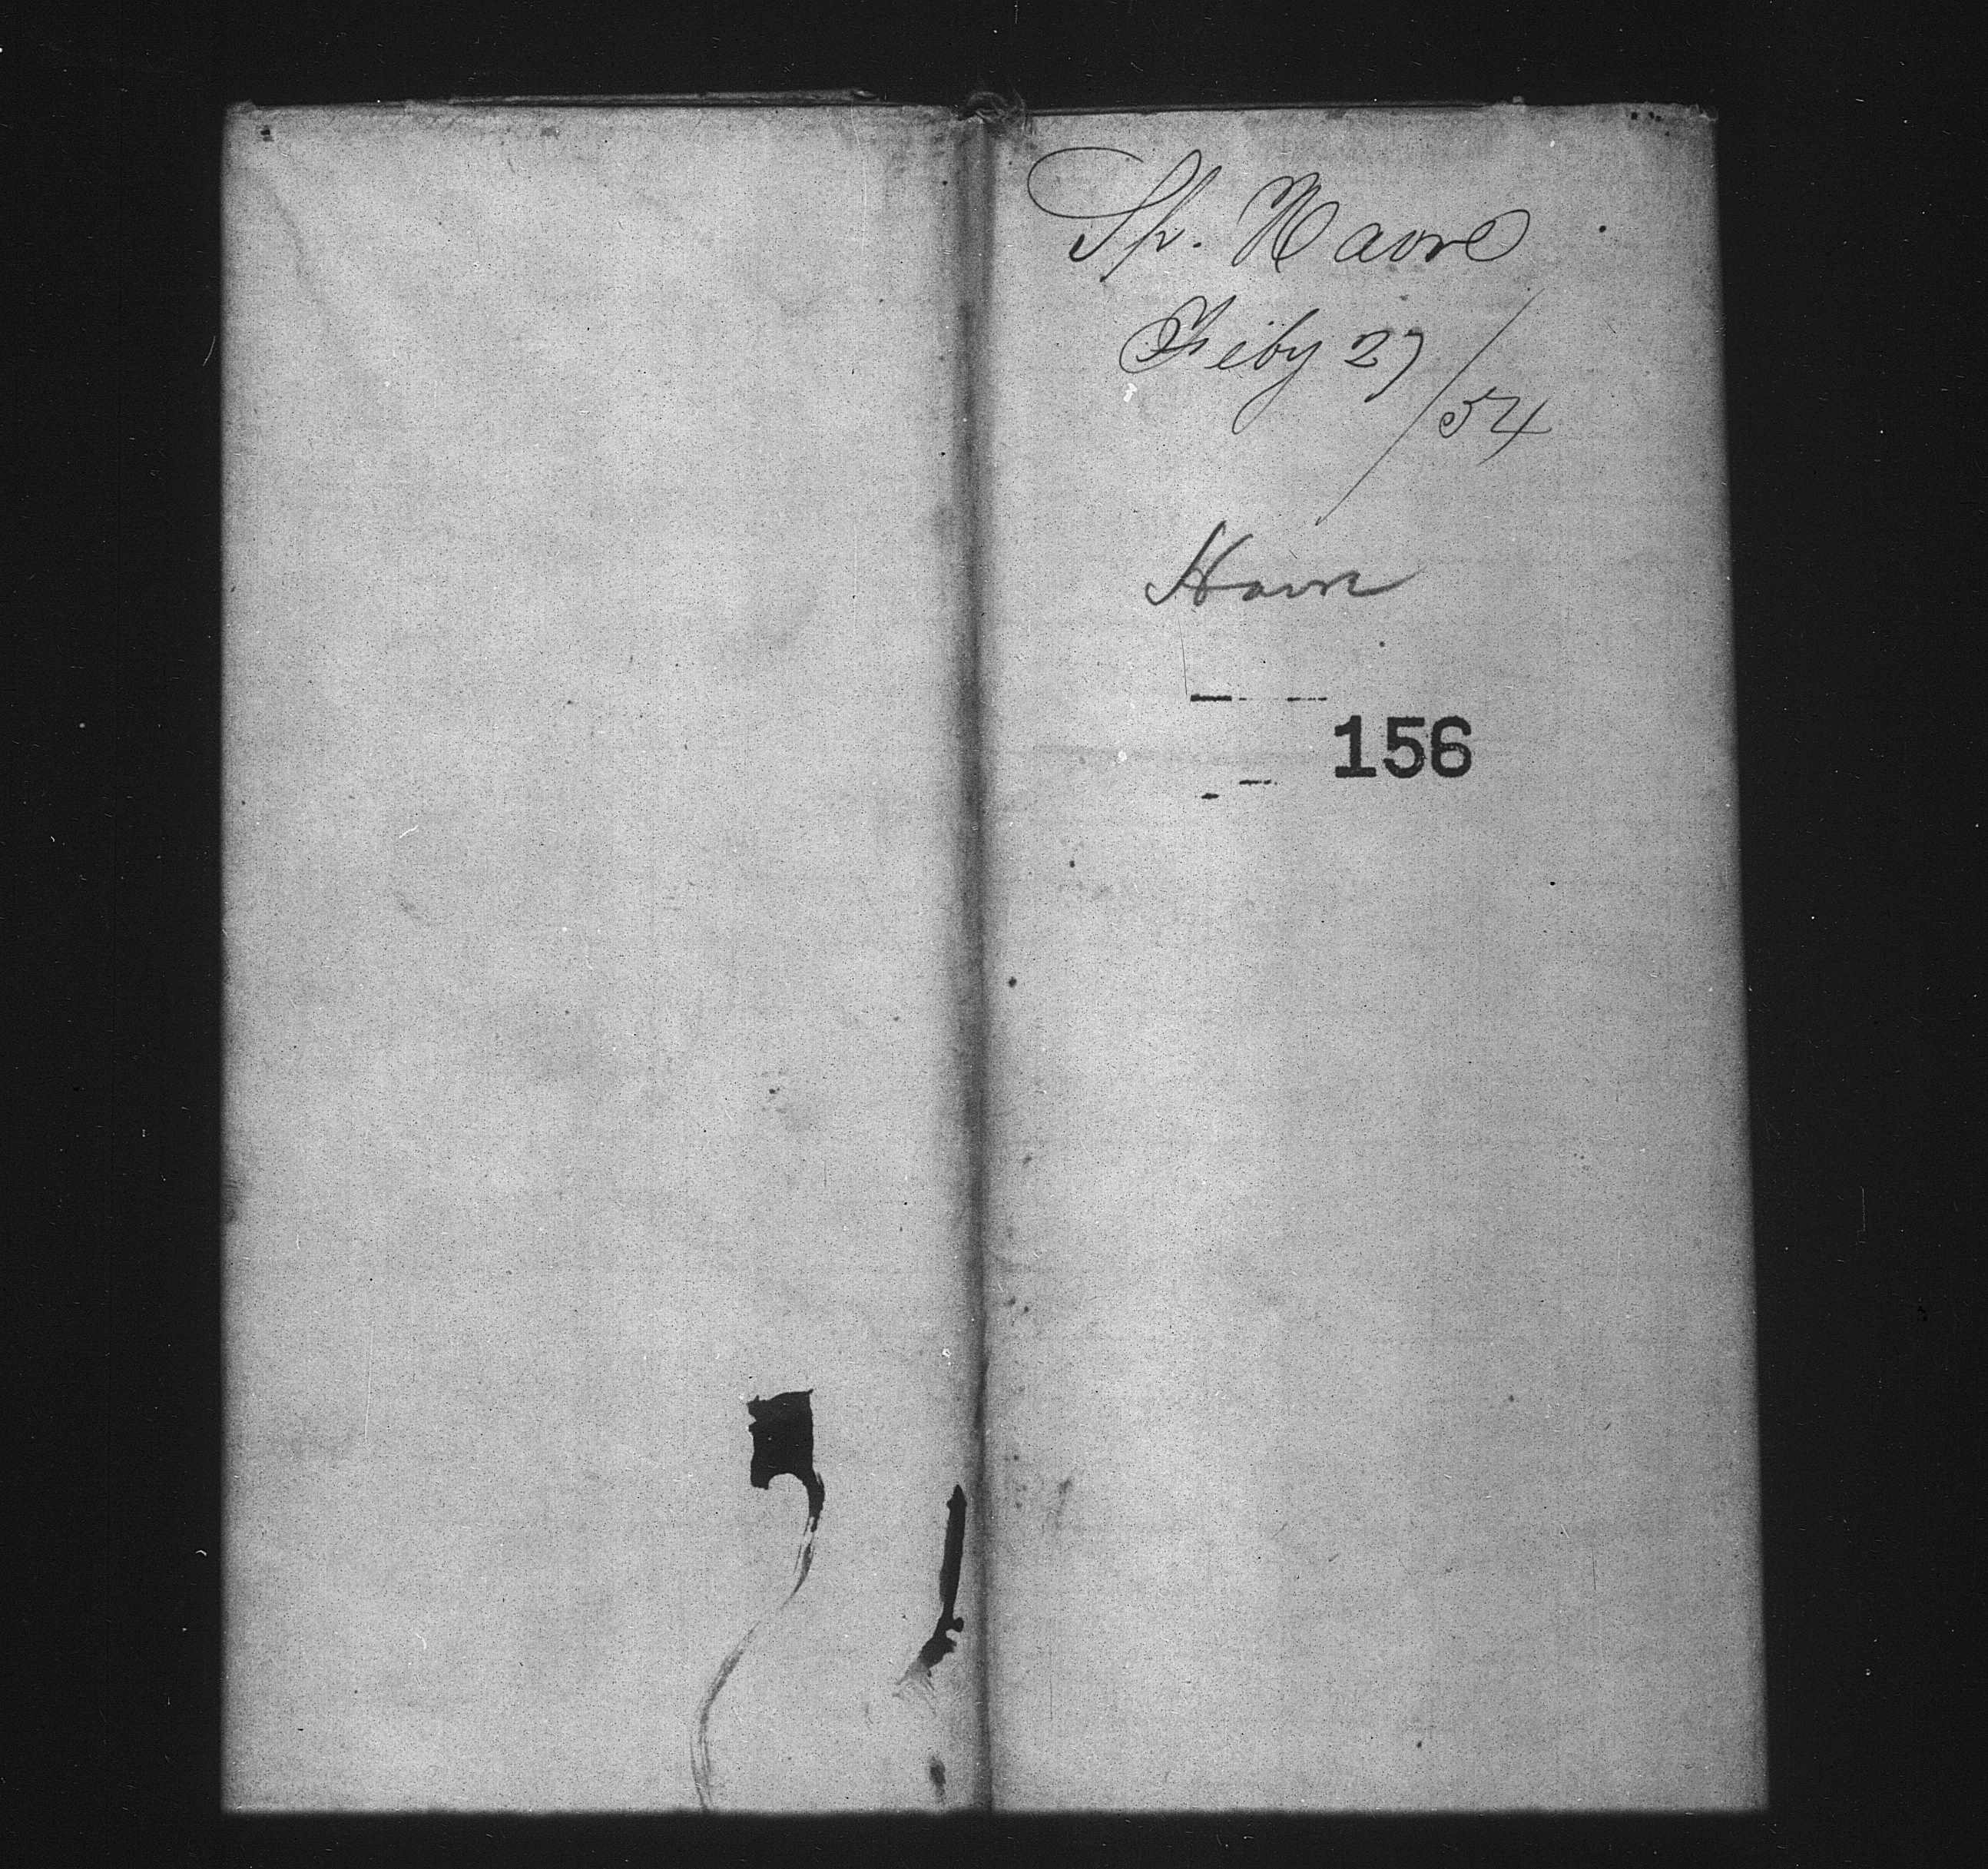 Sh. Havre
Feby 27/54
Havre
156